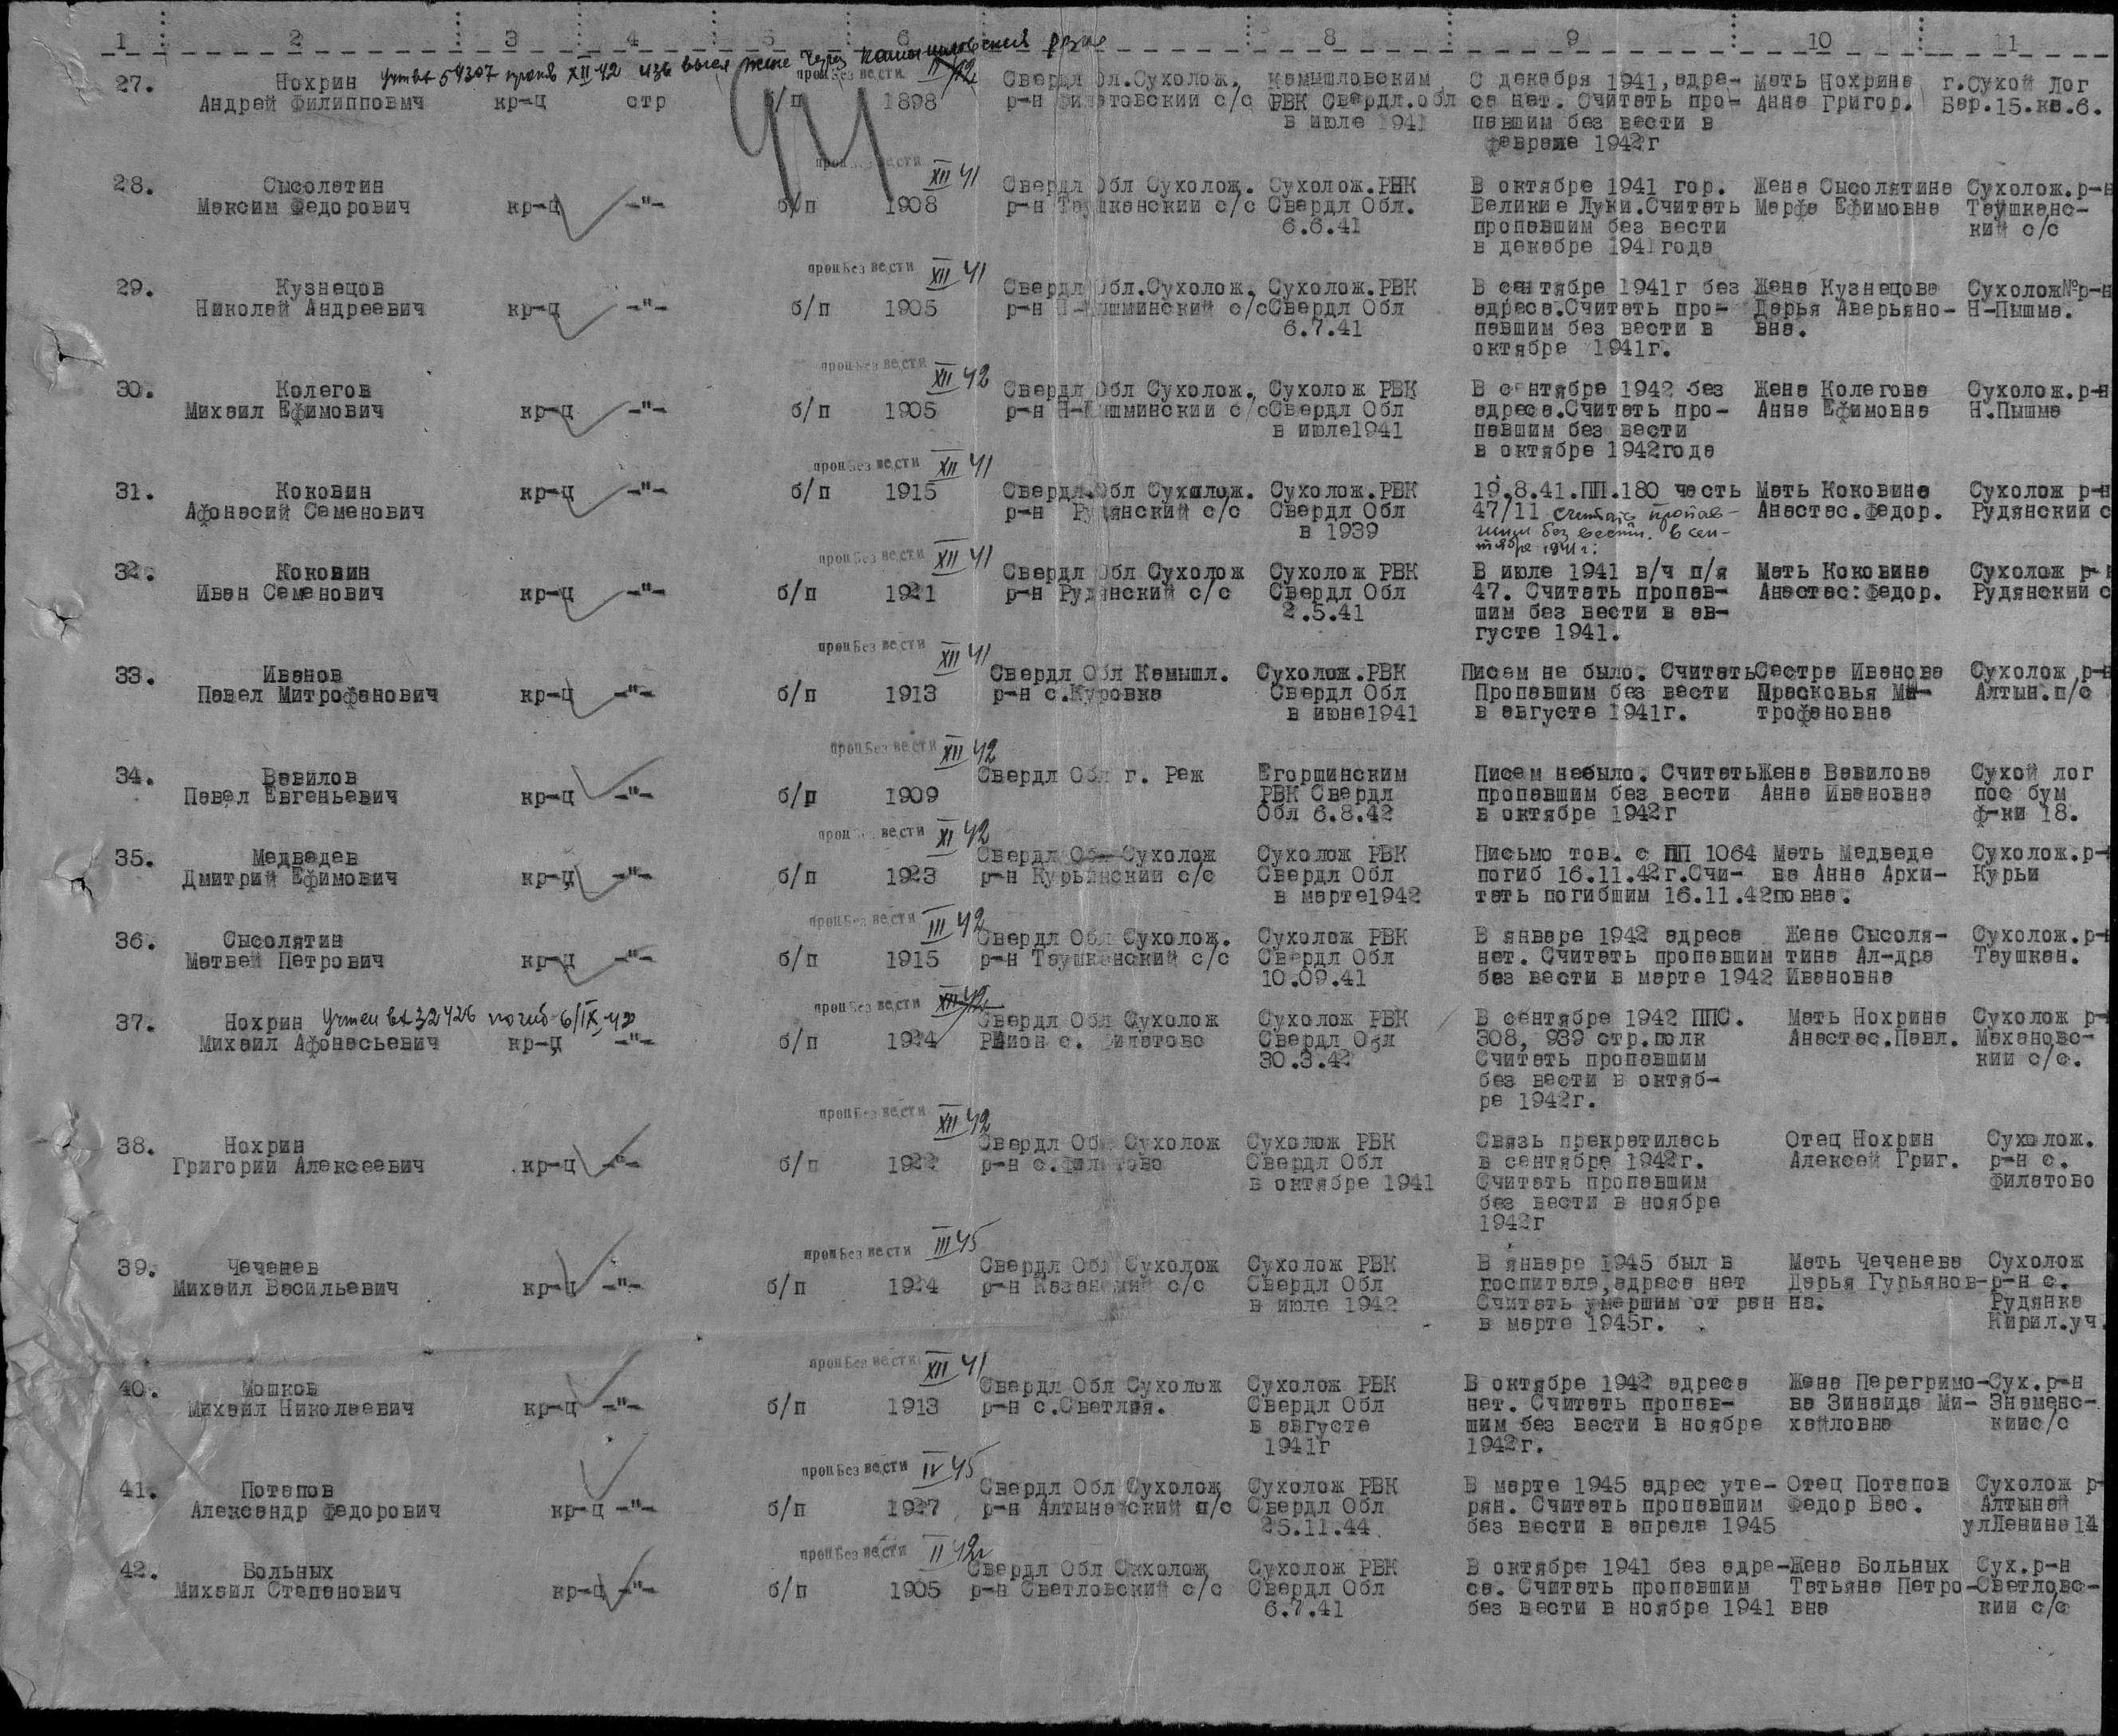 1 2 3 4 5 6 8 9 10 11
27. Нохрин учтен 54307 XII 42 изв высл жене через
Андрей Филиппович кр-ц стр б/п 1898
проп без вести II 42
Свердл Ол.Сухолож.
р-н Филатовский с/с
Камышловским
РВК Свердл.обл
в июле 1941
С декабря 1941, адре-
са нет. Считать про-
павшим без вести в
феврале 1942г
Мать Нохрина
Анна Григор.
г.Сухой Лог
Бар.15.кв.6.
94
28. Сысолятин
Максим Федорович кр-ц -"- б/п 1908
проп без вести XII 41
Свердл Обл Сухолож.
р-н Таушканский с/с
Сухолож.РВК
Свердл Обл.
6.6.41
В октябре 1941 гор.
Великие Луки.Считать
пропавшим без вести
в декабре 1941года
Жена Сысолятина
Марфа Ефимовна
Сухолож.р-н
Таушканс-
кий с/с
29. Кузнецов
Николай Андреевич кр-ц -"- б/п 1905
проп без вести XII 41
Свердл Обл.Сухолож.
р-н Н-Пышминский с/с
Сухолож.РВК
Свердл Обл
6.7.41
В сентябре 1941г без
адреса.Считать про-
павшим без вести в
октябре 1941г.
Жена Кузнецова
Дарья Аверьяно-
вна.
Сухолож№р-н
Н-Пышма.
30. Колегов
Михаил Ефимович кр-ц -"- б/п 1905
проп без вести XII 42
Свердл Обл Сухолож.
р-н Н-Пышминский с/с
Сухолож РВК
Свердл Обл
в июле1941
В сентябре 1942 без
адреса.Считать про-
павшим без вести
в октябре 1942года
Жена Колегова
Анна Ефимовна
Сухолож.р-н
Н.Пышма
31. Коковин кр-ц -"- б/п 1915
Афонасий Семенович
проп без вести XII 41
Свердл.Обл Сухолож.
р-н Рудянский с/с
Сухолож.РВК
Свердл Обл
в 1939
19.8.41.ПП.180 часть
47/11 считать пропав-
шим без вести. в сен-
тябре 1941г.
Мать Коковина
Анастас.Федор.
Сухолож р-н
Рудянский с
32. Коковин
Иван Семенович кр-ц -"- б/п 1921
проп без вести XII 41
Свердл Обл Сухолож
р-н Рудянский с/с
Сухолож РВК
Свердл Обл
2.5.41
В июле 1941 в/ч п/я
47. Считать пропав-
шим без вести в ав-
густе 1941.
Мать Коковина
Анастас:Федор.
Сухолож р-н
Рудянский с
33. Иванов
Павел Митрофанович кр-ц -"- б/п 1913
проп без вести XII 41
Свердл Обл Камышл.
р-н с.Куровка
Сухолож.РВК
Свердл Обл
в июне1941
Писем не было. Считать
Пропавшим без вести
в августе 1941г.
Сестра Иванова
Прасковья Ми-
трофановна
Сухолож р-н
Алтын.п/с
34. Вавилов
Павел Евгеньевич кр-ц -"- б/п 1909
проп без вести XII 42
Свердл Обл г. Реж
Егоршинским
РВК Свердл
Обл 6.8.42
Писем небыло. Считать
пропавшим без вести
в октябре 1942г
Жена Вавилова
Анна Ивановна
Сухой лог
пос бум
ф-ки 18.
35. Медведев
Дмитрий Ефимович кр-ц -"- б/п 1923
проп без вести XI 42
Свердл Обл Сухолож
р-н Курьинский с/с
Сухолож РВК
Свердл Обл
в марте1942
Письмо тов. с ПП 1064
погиб 16.11.42г.Счи-
тать погибшим 16.11.42
Мать Медведе
ва Анна Архи-
повна.
Сухолож.р-н
Курьи
36. Сысолятин
Матвей Петрович кр-ц -"- б/п 1915
проп без вести III 42
Свердл Обл Сухолож.
р-н Таушканский с/с
Сухолож РВК
Свердл Обл
10.09.41
В январе 1942 адреса
нет. Считать пропавшим
без вести в марте 1942
Жена Сысоля-
тина Ал-дра
Ивановна
Сухолож.р-н
Таушкан.
37. Нохрин Учтен вх 32426 погиб 6/IX-42
Михаил Афонасьевич кр-ц -"- б/п 1924
проп без вести XII 42
Свердл Обл Сухолож
Район с. Филатово
Сухолож РВК
Свердл Обл
30.3.42
В сентябре 1942 ППС.
308, 939 стр.полк
Считать пропавшим
без вести в октяб-
ре 1942г.
Мать Нохрина
Анастас.Павл.
Сухолож р-н
Махановс-
кий с/с.
38. Нохрин
Григорий Алексеевич кр-ц -"- б/п 1922
проп без вести XII 42
Свердл Обл Сухолож
р-н с.Филатово
Сухолож РВК
Свердл Обл
в октябре 1941
Связь прекратилась
в сентябре 1942г.
Считать пропавшим
без вести в ноябре
1942г
Отец Нохрин
Алексей Григ.
Сухолож.
р-н с.
Филатово
39. Чеченев
Михаил Васильевич кр-ц -"- б/п 1924
проп без вести III 45
Свердл Обл Сухолож
р-н Казанский с/с
Сухолож РВК
Свердл Обл
в июле 1942
В январе 1945 был в
госпитале,адреса нет
Считать умершим от ран
в марте 1945г.
Мать Чеченева
Дарья Гурьянов-
на.
Сухолож
р-н с.
Рудянка
Кирил.уч.
40. Мошков
Михаил Николаевич кр-ц -"- б/п 1913
проп без вести XII 41
Свердл Обл Сухолож
р-н с.Светлая.
Сухолож РВК
Свердл Обл
в августе
1941г
В октябре 1942 адреса
нет. Считать пропав-
шим без вести в ноябре
1942г.
Жена Перегримо-
ва Зинаида Ми-
хайловна
Сух.р-н
Знаменс-
кийс/с
41. Потапов
Александр Федорович кр-ц -"- б/п 1927
проп без вести IV 45
Свердл Обл Сухолож
р-н Алтынайский п/с
Сухолож РВК
Свердл Обл
25.11.44
В марте 1945 адрес уте-
рян. Считать пропавшим
без вести в апреле 1945
Отец Потапов
Федор Вас.
Сухолож р-
Алтынай
улЛенина14
42. Больных
Михаил Степанович кр-ц -"- б/п 1905
проп без вести II 42г
Свердл Обл Сжхолож
р-н Светловский с/с
Сухолож РВК
Свердл Обл
6.7.41
В октябре 1941 без адре-
са. Считать пропавшим
без вести в ноябре 1941
Жена Больных
Татьяна Петро-
вна
Сух.р-н
Светловс-
кий с/с